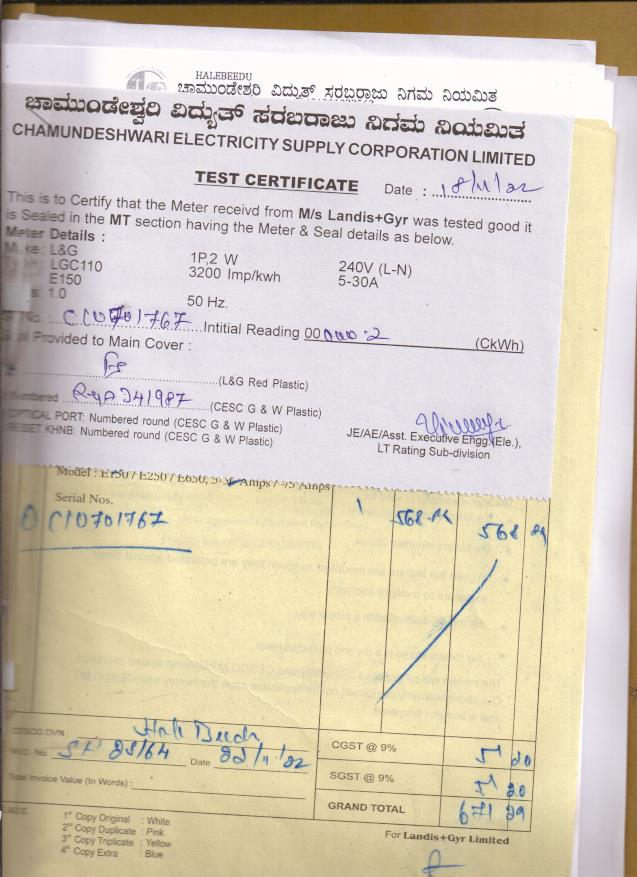 HALEBEEDU
ಚಾಮುಂಡೇಶ್ವರಿ ವಿದ್ಯುತ್ ಸರಬರಾಜು ನಿಗಮ ನಿಯಮಿತ
ಚಾಮುಂಡೇಶ್ವರಿ ವಿದ್ಯುತ್ ಸರಬರಾಜು ನಿಗಮ ನಿಯಮಿತ
CHAMUNDESHWARI ELECTRICITY SUPPLY CORPORATION LIMITED
TEST CERTIFICATE Date : 18/11/22
This is to Certify that the Meter receivd from M/s Landis+Gyr was tested good it
is Sealed in the MT section having the Meter & Seal details as below.
Meter Details :
: L&G 1P,2 W 240V (L-N)
: LGC110 3200 Imp/kwh 5-30A
E150
: 1.0 50 Hz.
No. : C10701767 Intitial Reading 00 000.2 (CkWh)
Provided to Main Cover :
(L&G Red Plastic)
Numbered (CESC G & W Plastic)
OPTICAL PORT: Numbered round (CESC G & W Plastic)
RESET KHNB: Numbered round (CESC G & W Plastic)
JE/AE/Asst. Executive Engg.(Ele.),
LT Rating Sub-division
Model : E150 / E250 / E650, 5-30 Amps / Amps
Serial Nos. 1
C10701767
CESCO DVN : Hale Beedu
No. Date 22/11/22
Total Invoice Value (In Words) :
CGST @ 9% 51 20
SGST @ 9% 51 20
GRAND TOTAL 671 29
1st Copy Original : White
2nd Copy Duplicate : Pink
3rd Copy Triplicate : Yellow
4th Copy Extra : Blue
For Landis+Gyr Limited